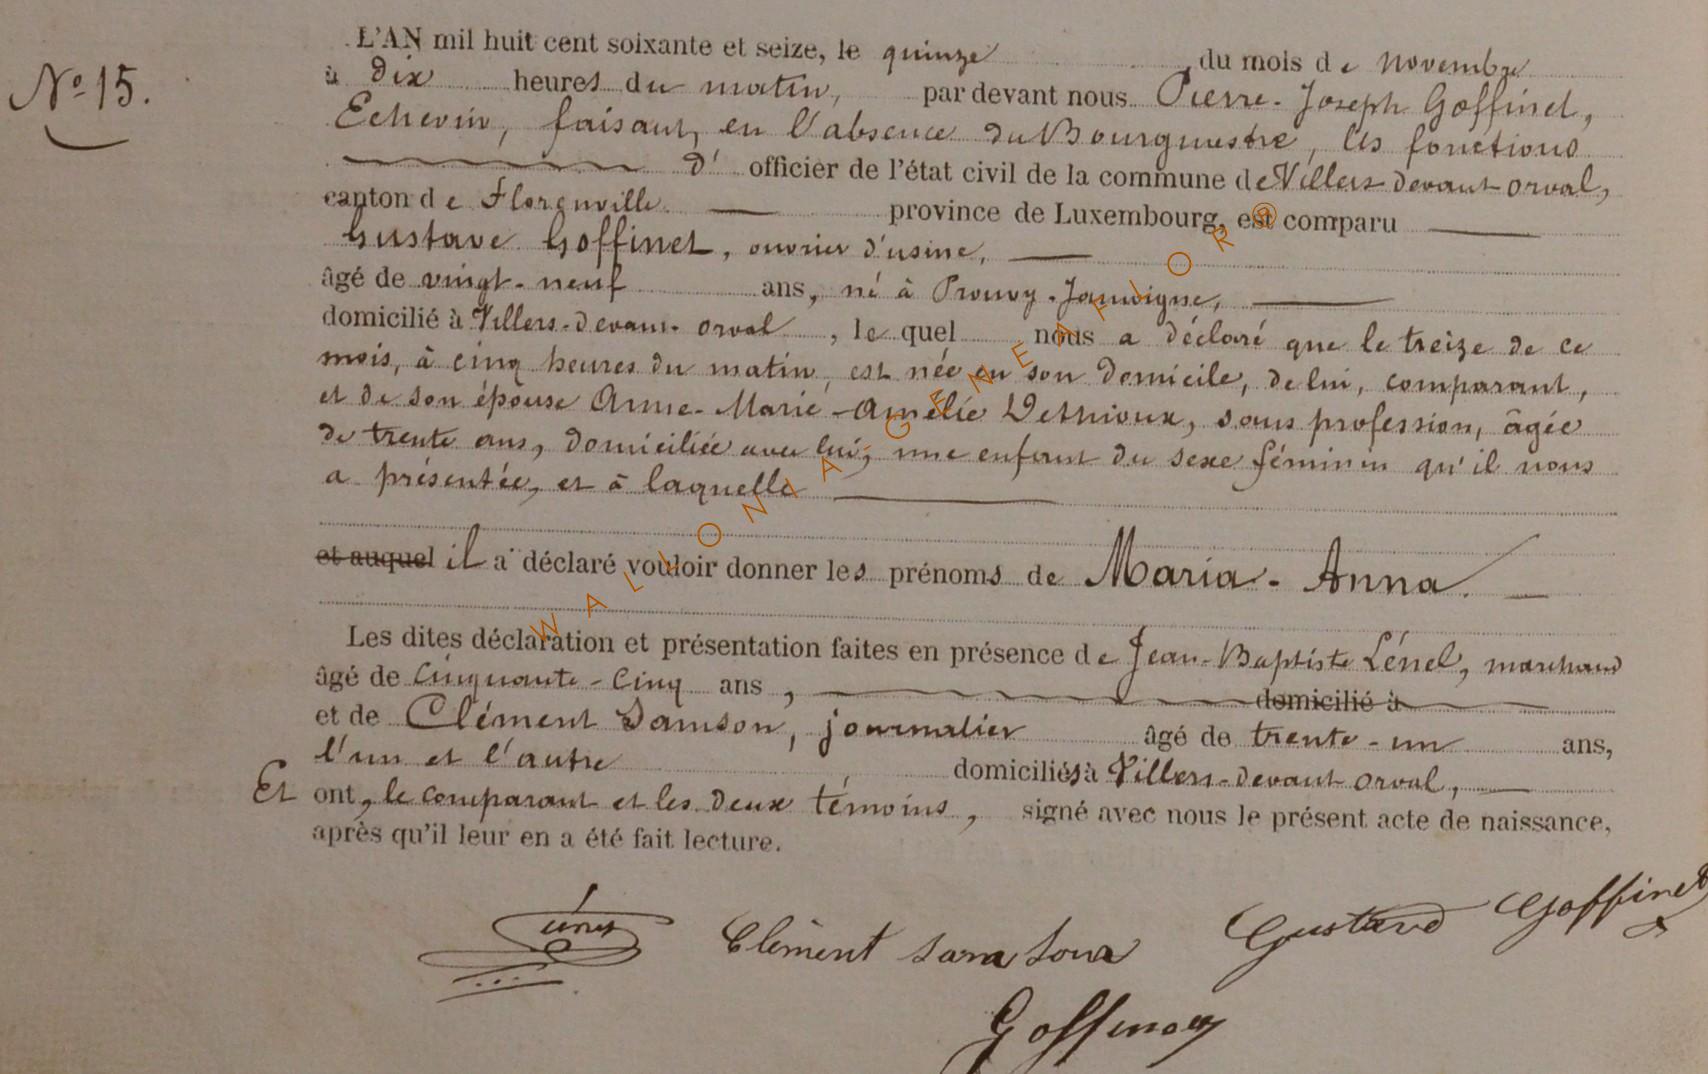 N° 15.
L'AN mil huit cent soixante et seize, le quinze du mois de novembre
à dix heures du matin, par devant nous Pierre-Joseph Goffinet,
Echevin, faisant, en l'absence du Bourgmestre, les fonctions
d' officier de l'état civil de la commune de Villers devant orval,
canton de Florenville province de Luxembourg, est comparu
Gustave Goffinet, ouvrier d'usine,
âgé de vingt-neuf ans, né à Prouvy-Jamoigne,
domicilié à Villers-devant-orval, le quel nous a déclaré que le treize de ce
mois, à cinq heures du matin, est née en son domicile, de lui, comparant,
et de son épouse Anne-Marie-Amélie, sans profession, âgée
de trente ans, domiciliée avec lui, une enfant du sexe féminin qu'il nous
a présentée, et à laquelle
et auquel il a déclaré vouloir donner les prénoms de Maria-Anna.
Les dites déclaration et présentation faites en présence de Jean-Baptiste Lénel, marchand
âgé de Cinquante-Cinq ans, domicilié à
et de Clément Samson, journalier âgé de trente-un ans,
l'un et l'autre domiciliés à Villers-devant orval,
Et ont, le comparant et les deux témoins, signé avec nous le présent acte de naissance,
après qu'il leur en a été fait lecture.
Clément Gustave Goffinet
Goffinet
WALLONIA-GENEAFLOR@